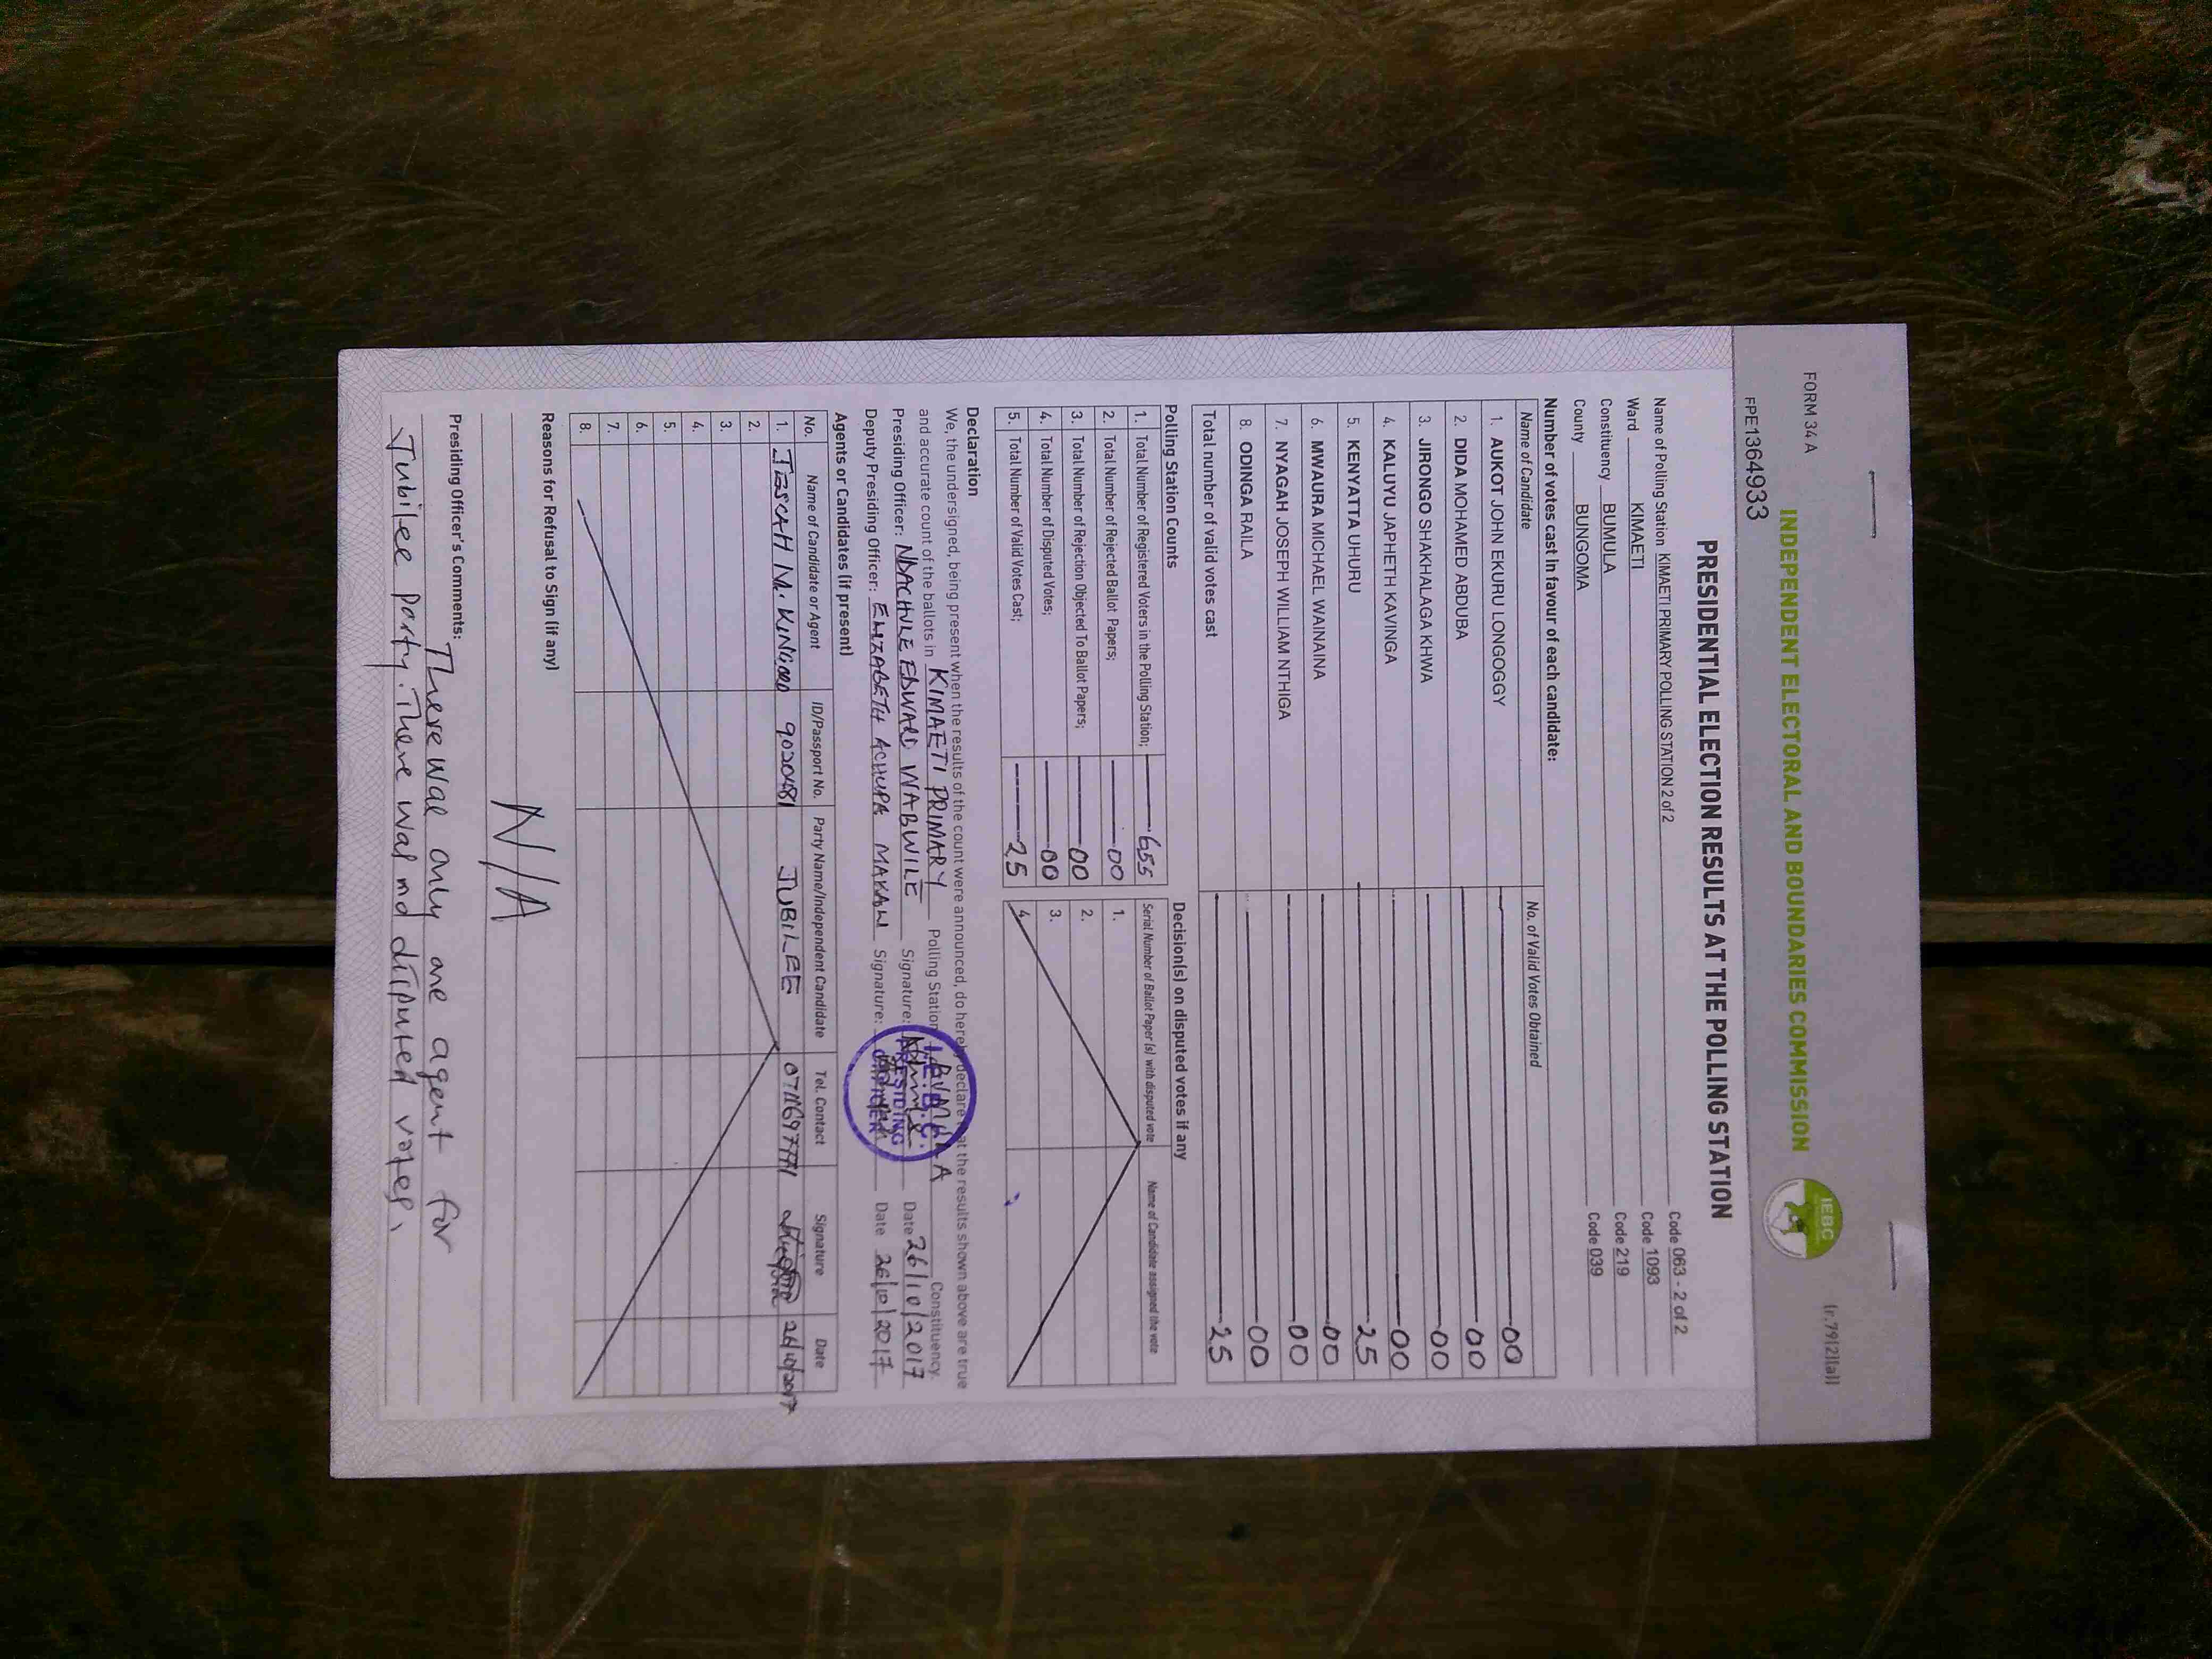 FORM 34 A
INDEPENDENT ELECTORAL AND BOUNDARIES COMMISSION
IEBC
(r.79(2)(a))
FPE1364933
PRESIDENTIAL ELECTION RESULTS AT THE POLLING STATION
Name of Polling Station KIMAETI PRIMARY POLLING STATION 2 of 2 Code 063 - 2 of 2
Ward KIMAETI Code 1093
Constituency BUMULA Code 219
County BUNGOMA Code 039
Number of votes cast in favour of each candidate:
Name of Candidate No. of Valid Votes Obtained
1. AUKOT JOHN EKURU LONGOGGY 00
2. DIDA MOHAMED ABDUBA 00
3. JIRONGO SHAKHALAGA KHWA 00
4. KALUYU JAPHETH KAVINGA 00
5. KENYATTA UHURU 25
6. MWAURA MICHAEL WAINAINA 00
7. NYAGAH JOSEPH WILLIAM NTHIGA 00
8. ODINGA RAILA 00
Total number of valid votes cast 25
Polling Station Counts
1. Total Number of Registered Voters in the Polling Station; 655
2. Total Number of Rejected Ballot Papers; 00
3. Total Number of Rejection Objected To Ballot Papers; 00
4. Total Number of Disputed Votes; 00
5. Total Number of Valid Votes Cast; 25
Decision(s) on disputed votes if any
Serial Number of Ballot Paper (s) with disputed vote Name of Candidate assigned the vote
1.
2.
3.
4.
Declaration
We, the undersigned, being present when the results of the count were announced, do hereby declare that the results shown above are true
and accurate count of the ballots in KIMAETI PRIMARY Polling Station BUMULA Constituency.
Presiding Officer: NDACHILE EDWARD WABWILE Signature: Date 26/10/2017
Deputy Presiding Officer: ELIZABETH ACHUPA MAKAW Signature: Date 26/10/2017
I.E.B.C.
PRESIDING
OFFICER
Agents or Candidates (if present)
No. Name of Candidate or Agent ID/Passport No. Party Name/Independent Candidate Tel. Contact Signature Date
1. JESCAH M. 9020481 JUBILEE 26/10/2017
2.
3.
4.
5.
6.
7.
8.
Reasons for Refusal to Sign (if any)
N/A
Presiding Officer's Comments: There was only one agent for
Jubilee party. There was no disputed votes.